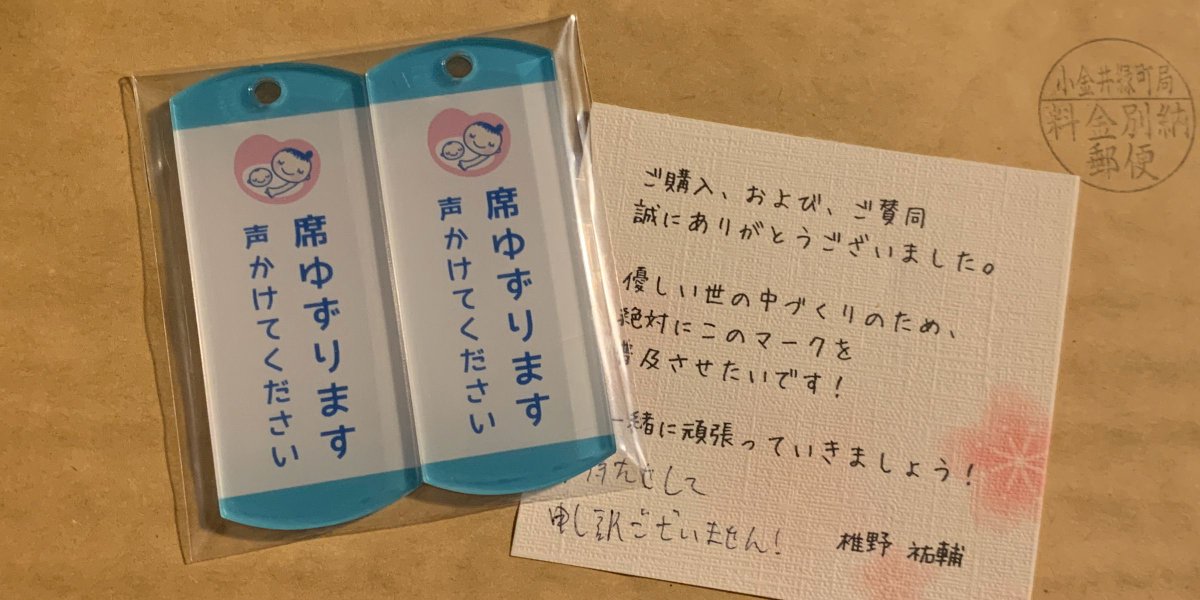 席ゆずります
声かけてください
席ゆずります
声かけてください
小金井緑町局
料金別納
郵便
ご購入、および、ご賛同
誠にありがとうございました。
優しい世の中づくりのため、
絶対にこのマークを
普及させたいです！
一緒に頑張っていきましょう！
待たせして
申し訳ございません！
椎野 祐輔